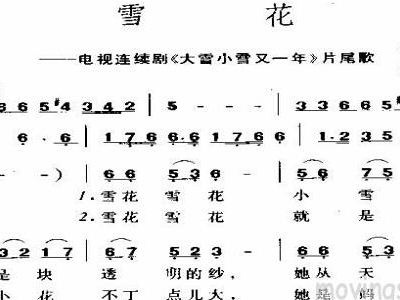 雪 花
——电视连续剧《大雪小雪又一年》片尾歌
6 6 5 #4 3 4 2 | 5 - - | 3 3 6 6 5
6 · 6 | 1 7 6 6 · 6 1 7 6 6 | 1 7 6
- - ） | 6 6 5 3 | 5 - - | 5 6 7 5
1.雪花 雪 花 小 雪
2.雪花 雪 花 就 是
3 2 1 7 | 6 7 5 | 5 2 3 - | 6 6 5
是 块 透 明 的 纱， 她 从 天
小 花 不 丁 点 儿 大， 她 是 妈